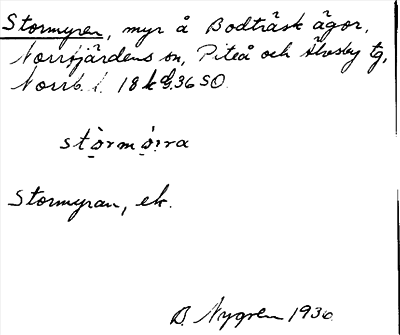 Stormyren, myr å Bodträsk ägor,
Norrfjärdens sn, Piteå och Älvsby tg,
Norrb. l. 18 k d, 36 SO.
stòrmó:ra
Stormyran, ek.
B. Nygren 1936